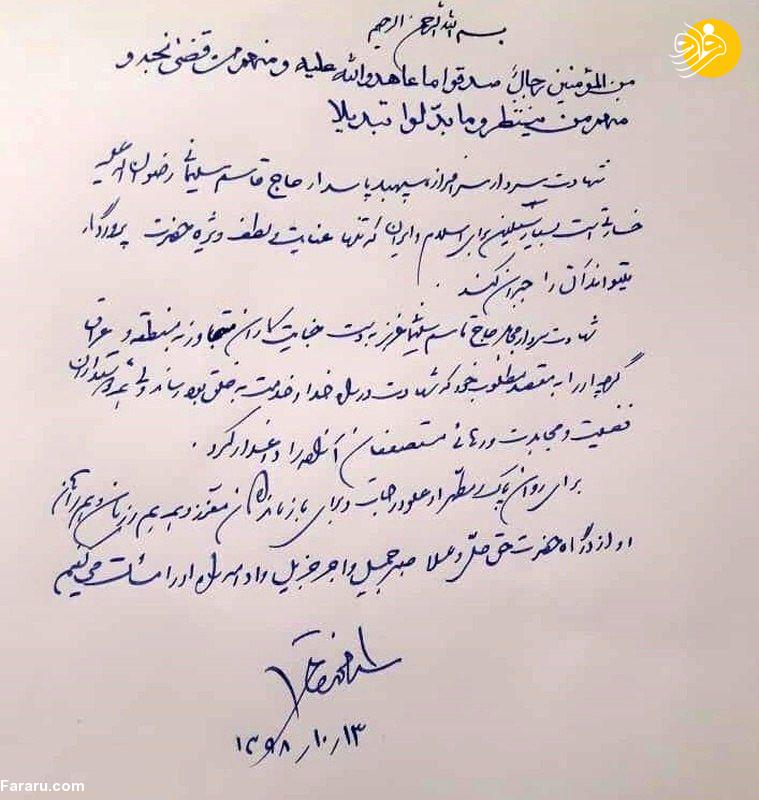 فرارو
بسم الله الرحمن الرحیم
من المؤمنین رجال صدقوا ما عاهدوا الله علیه و منهم من قضی نحبه و
منهم من ینتظر و ما بدّلوا تبدیلا
شهادت سردار سرافراز سپهبد پاسدار حاج قاسم سلیمانی رضوان الله علیه
خسارتی است بسیار سنگین برای اسلام و ایران که تنها عنایت و لطف ویژه حضرت پروردگار
میتواند آن را جبران کند.
شهادت سردار مجاهد حاج قاسم سلیمانی عزیز به دست جنایت کاران متجاوز به منطقه و عراق
گرچه او را به مقصد مطلوب خود که شهادت در راه خدا و خدمت به خلق بود رساند ولی همه دوستداران
فضیلت و مجاهدت و رهائی مستضعفان را داغدار کرد.
برای روان پاک و مطهر او علو درجات و برای بازماندگان معزز و همه هم رزمان و هم راهان
او از درگاه حضرت حق جلّ و علا صبر جمیل و اجر جزیل و ادامه راه او را مسئلت می کنیم
سید محمد خاتمی
۱۳۹۸/۱۰/۱۳
Fararu.com